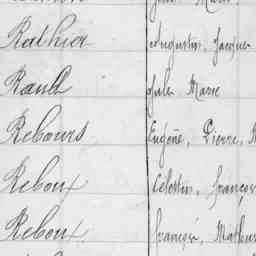 Rathier Augustin, Jacque
Rault Jules Marie
Rebours Eugène, Pierre, M
Reboux Célestin, françois
Reboux françois, Mathur